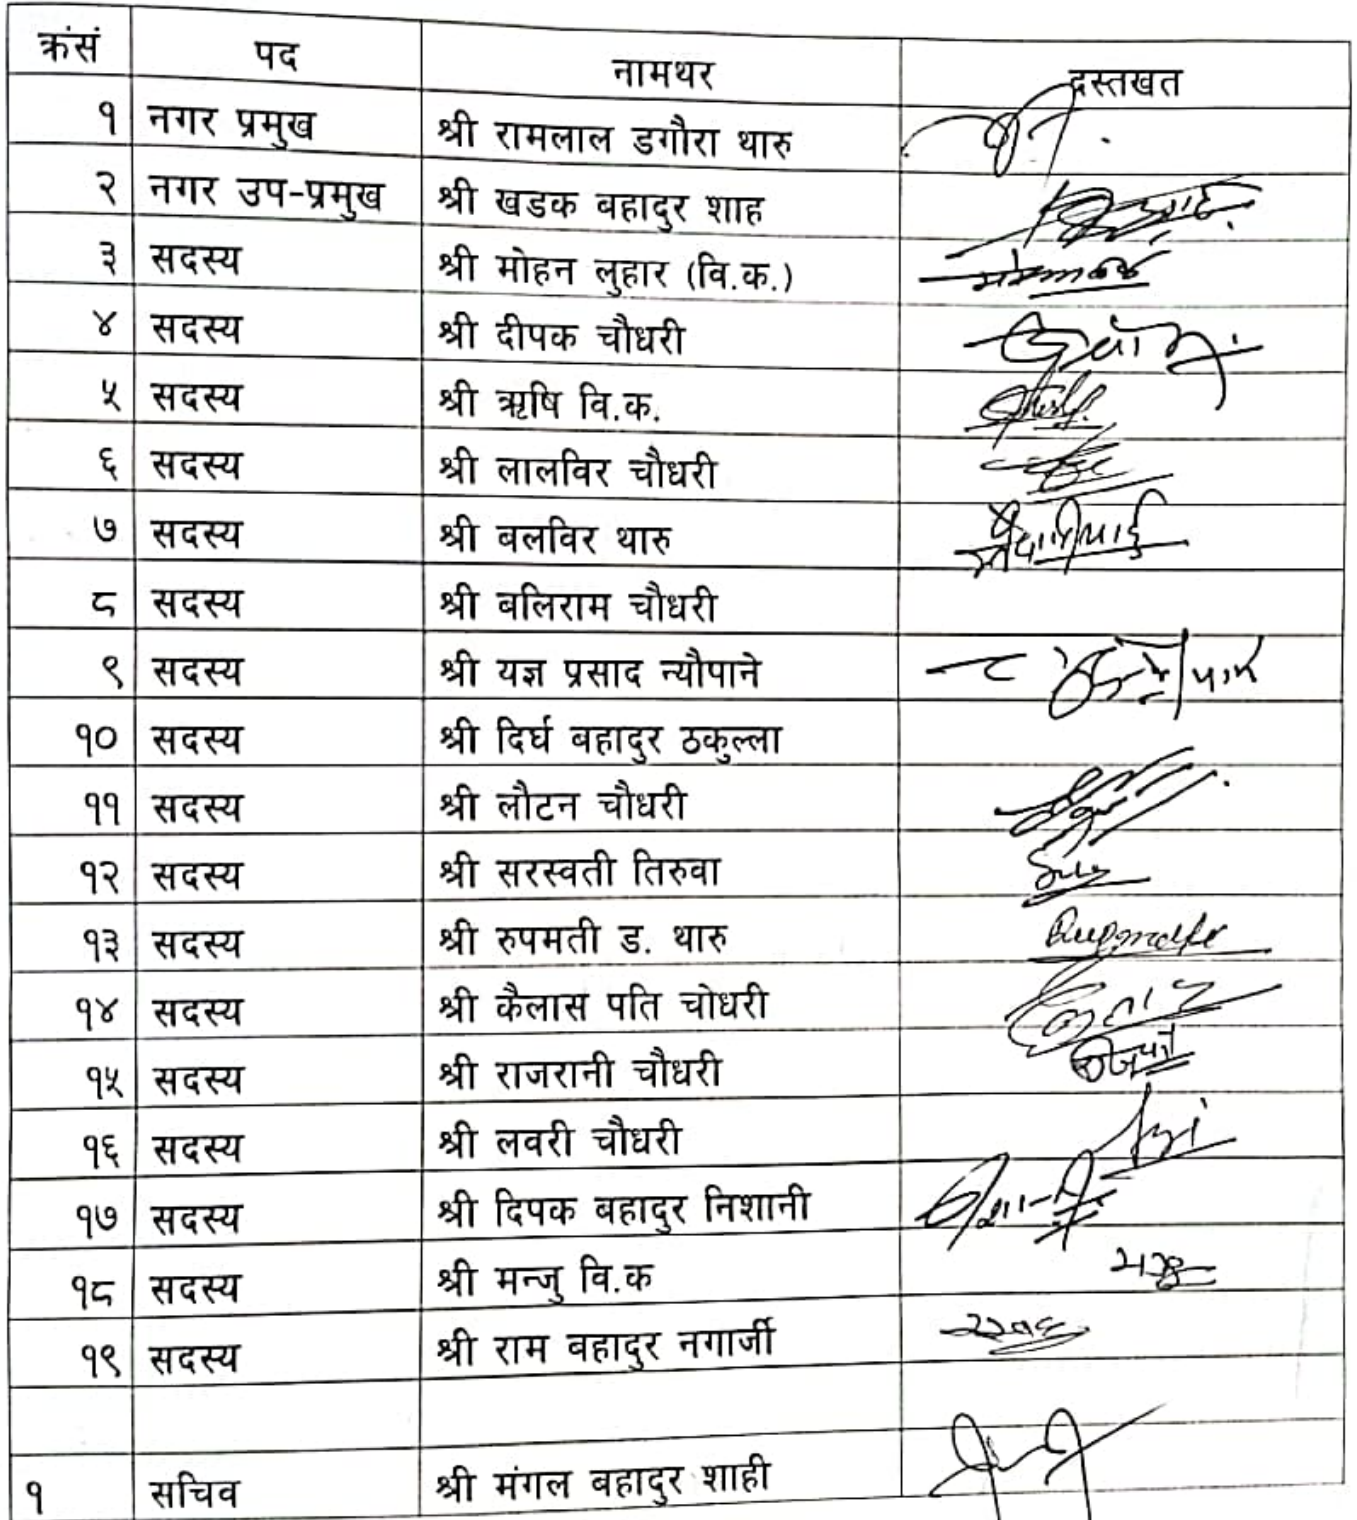 क्रंसं पद नामथर दस्तखत
१ नगर प्रमुख श्री रामलाल डगौरा थारु
२ नगर उप-प्रमुख श्री खडक बहादुर शाह
३ सदस्य श्री मोहन लुहार (वि.क.)
४ सदस्य श्री दीपक चौधरी
५ सदस्य श्री ऋषि वि.क.
६ सदस्य श्री लालविर चौधरी
७ सदस्य श्री बलविर थारु
८ सदस्य श्री बलिराम चौधरी
९ सदस्य श्री यज्ञ प्रसाद न्यौपाने
१० सदस्य श्री दिर्घ बहादुर ठकुल्ला
११ सदस्य श्री लौटन चौधरी
१२ सदस्य श्री सरस्वती तिरुवा
१३ सदस्य श्री रुपमती ड. थारु
१४ सदस्य श्री कैलास पति चोधरी
१५ सदस्य श्री राजरानी चौधरी
१६ सदस्य श्री लवरी चौधरी
१७ सदस्य श्री दिपक बहादुर निशानी
१८ सदस्य श्री मन्जु वि.क
१९ सदस्य श्री राम बहादुर नगार्जी
१ सचिव श्री मंगल बहादुर शाही